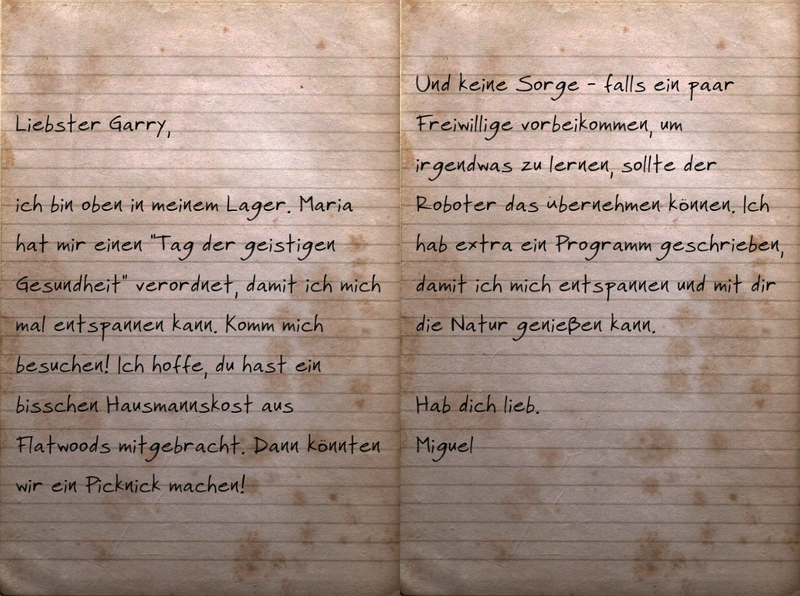 Liebster Garry,
ich bin oben in meinem Lager. Maria
hat mir einen "Tag der geistigen
Gesundheit" verordnet, damit ich mich
mal entspannen kann. Komm mich
besuchen! Ich hoffe, du hast ein
bisschen Hausmannskost aus
Flatwoods mitgebracht. Dann könnten
wir ein Picknick machen!
Und keine Sorge - falls ein paar
Freiwillige vorbeikommen, um
irgendwas zu lernen, sollte der
Roboter das übernehmen können. Ich
hab extra ein Programm geschrieben,
damit ich mich entspannen und mit dir
die Natur genießen kann.
Hab dich lieb.
Miguel